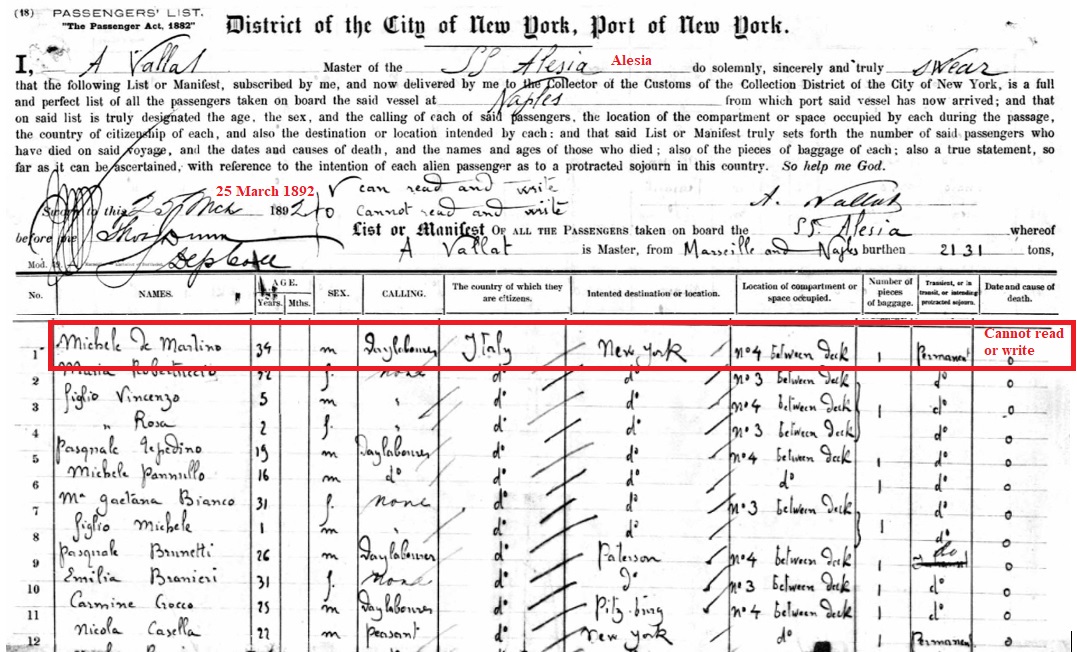 (18) PASSENGERS' LIST.
"The Passenger Act, 1882"
District of the City of New York, Port of New York.
I, A Vallat Master of the SS Alesia Alesia do solemnly, sincerely and truly swear
that the following List or Manifest, subscribed by me, and now delivered by me to the Collector of the Customs of the Collection District of the City of New York, is a full
and perfect list of all the passengers taken on board the said vessel at Naples from which port said vessel has now arrived; and that
on said list is truly designated the age, the sex, and the calling of each of said passengers, the location of the compartment or space occupied by each during the passage,
the country of citizenship of each, and also the destination or location intended by each: and that said List or Manifest truly sets forth the number of said passengers who
have died on said voyage, and the dates and causes of death, and the names and ages of those who died; also of the pieces of baggage of each; also a true statement, so
far as it can be ascertained, with reference to the intention of each alien passenger as to a protracted sojourn in this country. So help me God.
25 March 1892 V can read and write
Sworn to this 25 Mch 1892 o cannot read and write A. Vallat
before me List or Manifest OF ALL THE PASSENGERS taken on board the SS Alesia whereof
A Vallat is Master, from Marseille and Naples burthen 2131 tons,
Mod. Dep Coll
No. NAMES. AGE. Years. Mths. SEX. CALLING. The country of which they are citizens. Intended destination or location. Location of compartment or space occupied. Number of pieces of baggage. Transient, or in transit, or intending protracted sojourn. Date and cause of death.
1 Michele de Martino 34 m Daylabourer Italy New York n°4 between deck 1 Permanent o Cannot read or write
2 Maria 22 f. none d° d° n°3 between deck d° o
3 figlio Vincenzo 5 m " d° d° n°4 between deck 1 d° o
4 " Rosa 2 f. " d° d° n°3 between deck d° o
5 Pasquale 19 m Daylabourer d° d° n°4 between deck 1 d° o
6 Michele Pannullo 16 m d° d° d° d° 1 d° o
7 Mª Gaetana Bianco 31 f. none d° d° n°3 between deck d° o
8 figlio Michele 1 m " d° d° 1 d° o
9 Pasquale Brunetti 26 m Daylabourer d° Paterson n°4 between deck 1 do o
10 Emilia Branieri 31 f. None d° d° n°3 between deck 1 d° o
11 Carmine Crocco 25 m Daylabourer d° Pitz-burg n°4 between deck 1 d° o
12 Nicola Casella 22 m peasant d° New York d° 1 Permanent o